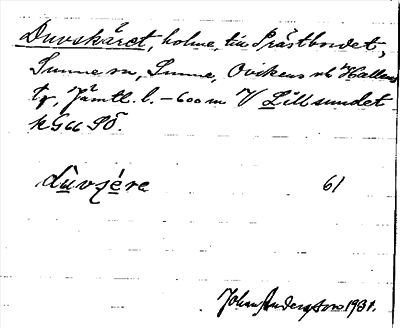 Duvskäret, holme, till Prästbordet,
Sunne sn, Sunne, Ovikens o. Hallens
tg, Jämtl. l. – 600 m V Lillsundet
k G66 SÖ.
dùvʃére 61
Johan Andersson 1931.